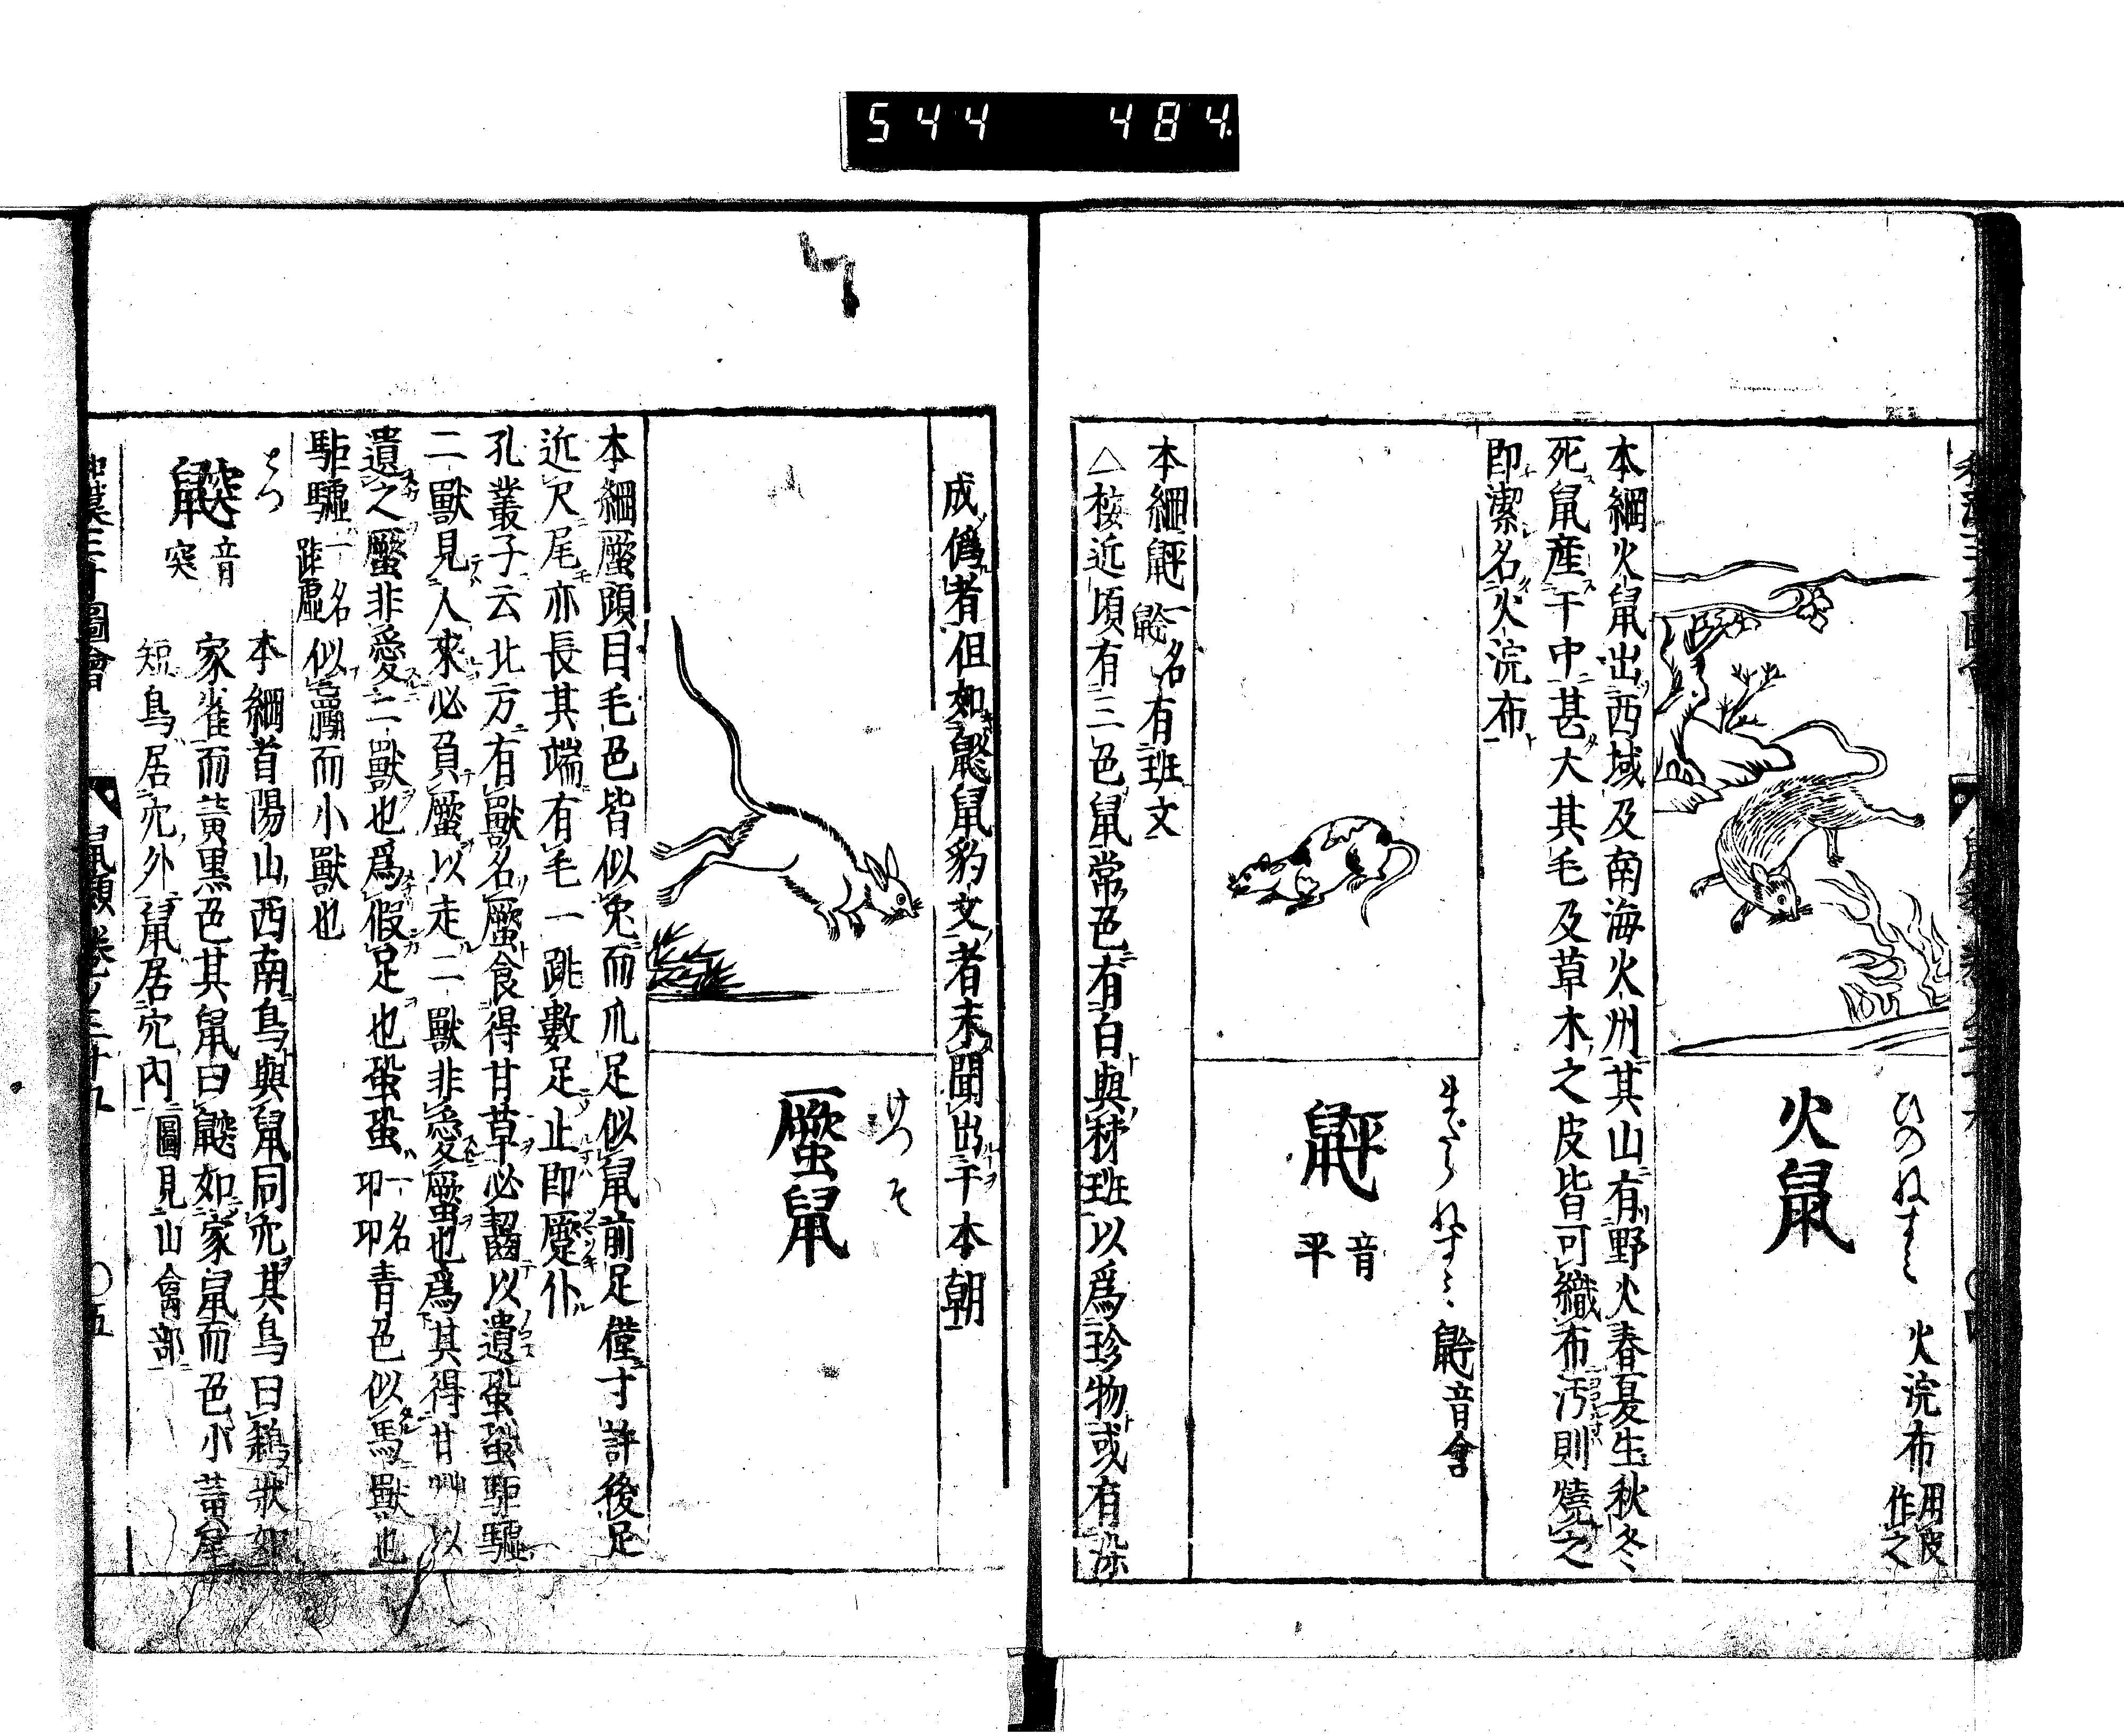 544 484
火鼠
ひのねすみ
火浣布 用皮作之
本綱火鼠出西域及南海火州其山有野火春夏生秋冬
死鼠産于中甚大其毛及草木之皮皆可織布汚則燒之
即潔名火浣布
鼮
まだらねずみ
音平
鼤音含
本綱鼮一名鼤有班文
△按近頃有三色鼠常色有白與秣班以爲珍物或有染
成僞者但如鼨鼠豹文者未聞出于本朝
蟨鼠
けつそ
本綱蟨頭目毛色皆似兎而爪足似鼠前足僅寸許後足
近尺尾亦長其端有毛一跳數足止即蹷仆
孔叢子云北方有獸名蟨食得甘草必齧以遺蛩蛩駏驉
二獸見人來必負蟨以走二獸非愛蟨也爲其得甘艸以
遺之蟨非愛二獸也爲假足也蛩蛩 一名卭卭 青色似馬獸也
駏驉 一名距虛 似騾而小獸也
とつ
鼵 音突
本綱首陽山西南鳥與鼠同穴其鳥曰鵌狀如
家雀而黃黒色其鼠曰鼵如家鼠而色小黃尾
短鳥居穴外鼠居穴內 圖見山禽部
和漢三才圖會
鼠類 卷ノ三十九
〇五